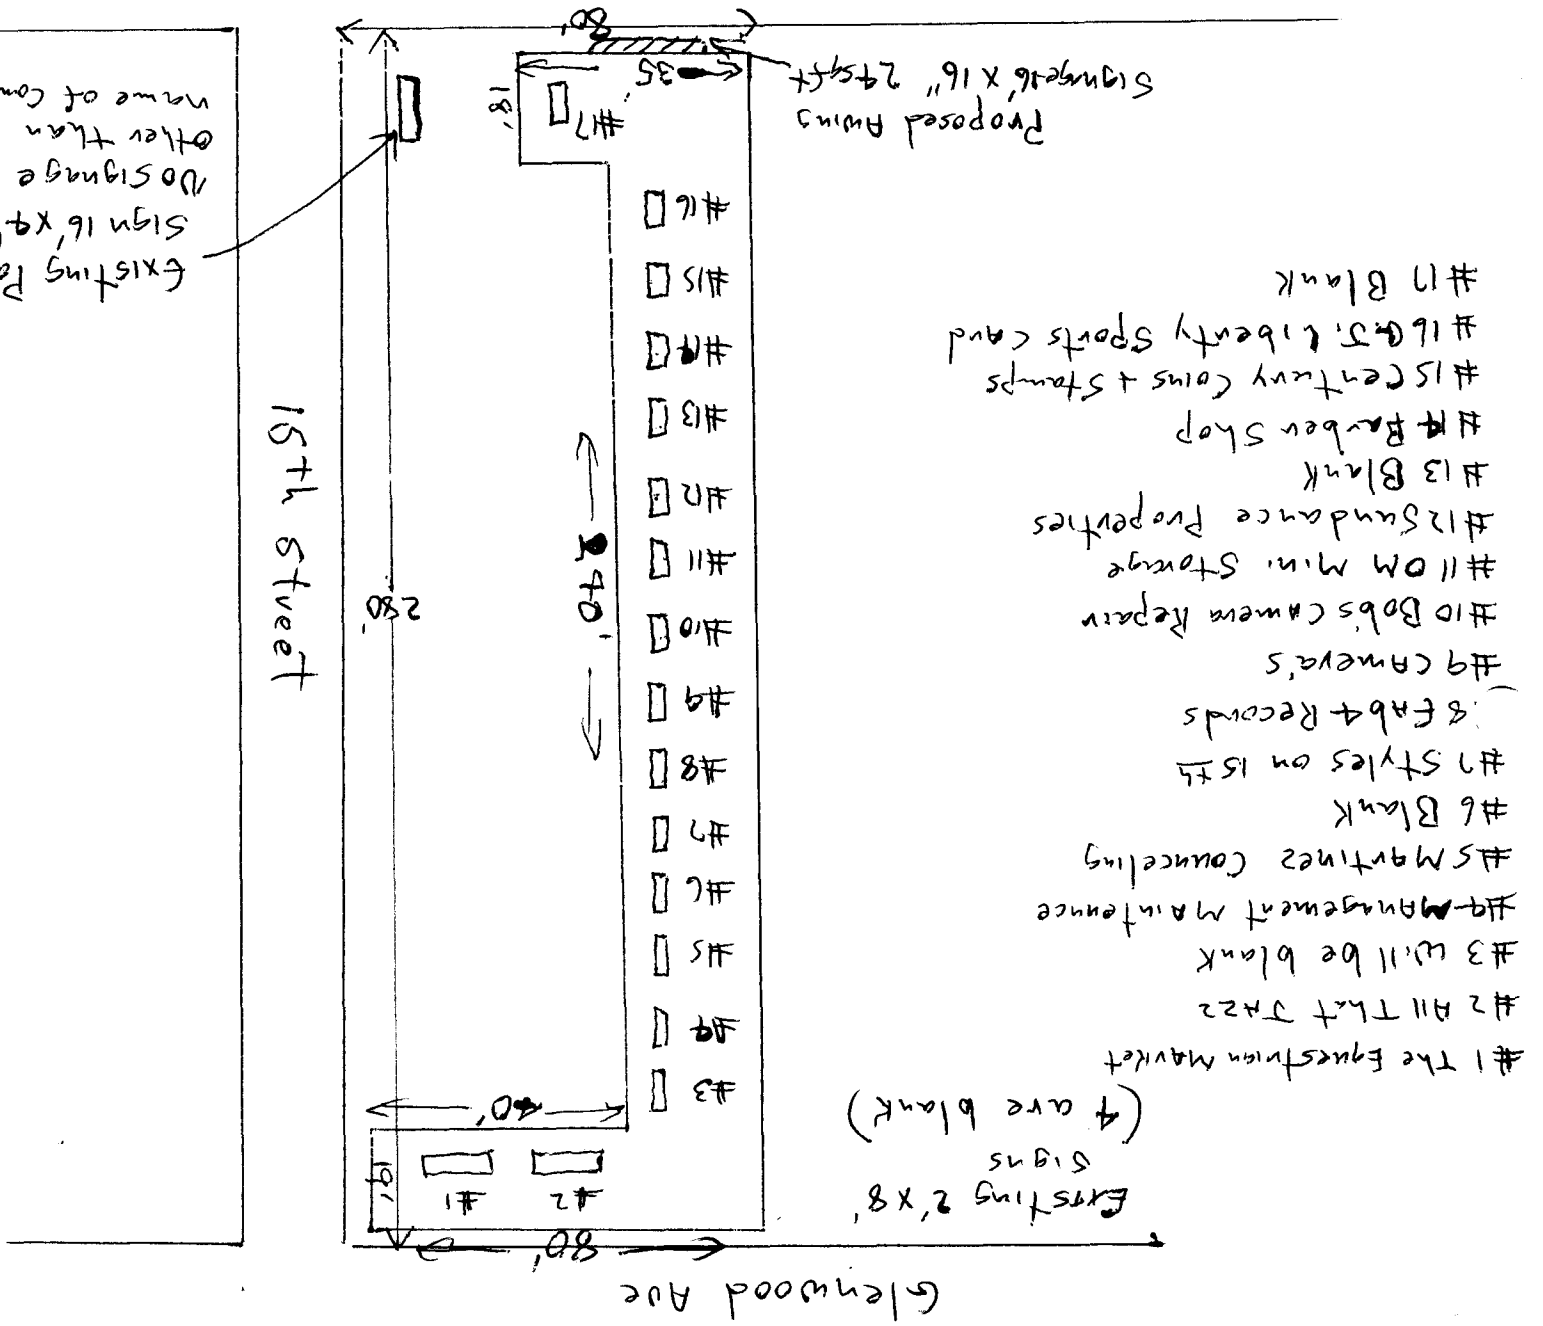 Glenwood Ave
80'
Existing 2'x8'
Signs
(4 are blank)
#1 The Equestrian Market
#2 All That JAZZ
#3 will be blank
#4 Management Maintence
#5 Martinez Counceling
#6 Blank
#7 Styles on 15th
8 FAb 4 Records
#9 Camera's
#10 Bob's Camera Repair
#11 OM Mini Storage
#12 Sundance Properties
#13 Blank
#14 Barber Shop
#15 Century Coins + Stamps
#16 G.J. Liberty Sports Card
#17 Blank
#2
#1
19'
40'
#3
#4
#5
#6
#7
#8
#9
#10
#11
#12
#13
#14
#15
#16
#17
240'
280'
15th Street
18'
35'
80'
Proposed Awing
Signage 16' x 16" 24 sqft
Existing
Sign 16' x 4'
No Signage
other than
name of